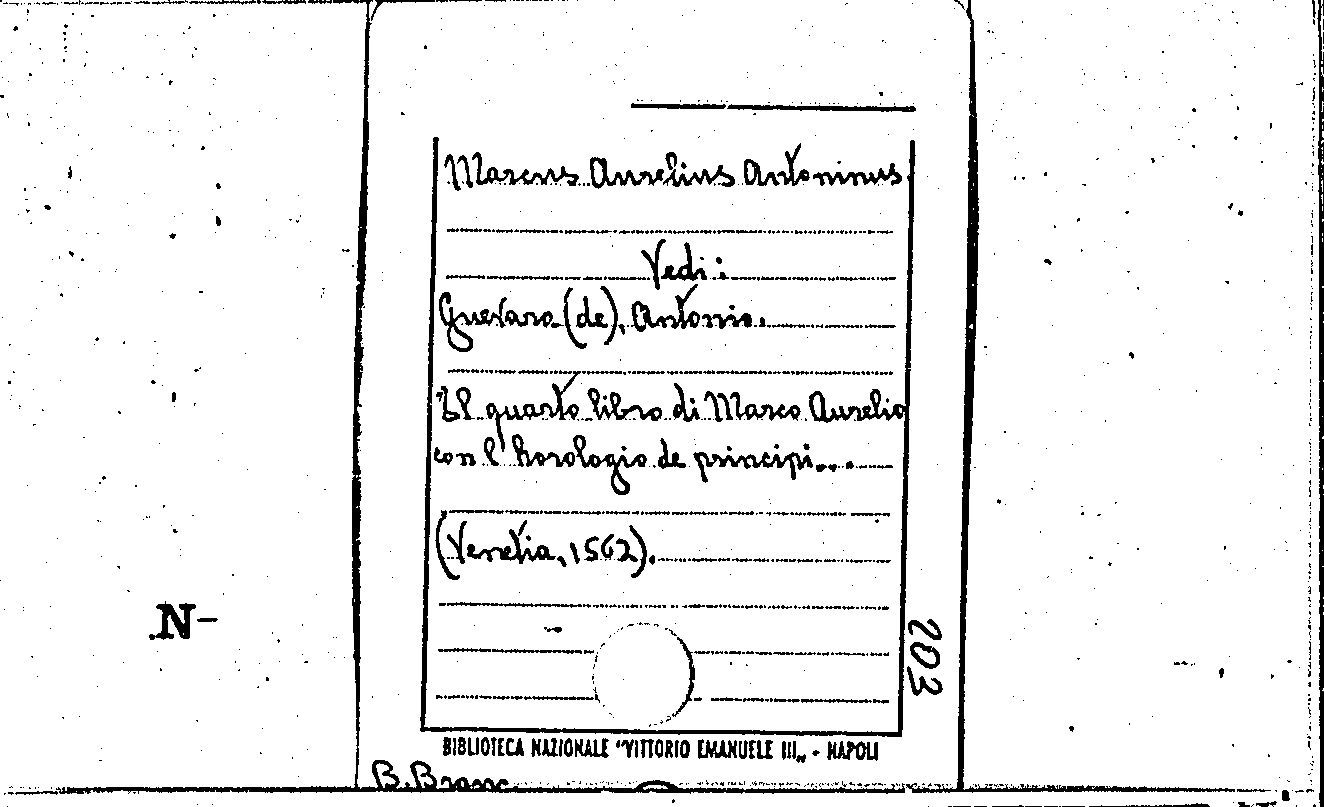 Marcus Aurelius Antoninus.
Vedi:
Guevara (de), Antonio.
Il quarto libro di Marco Aurelio
con l'horologio de principi...
(Venetia, 1562).
N-
203
BIBLIOTECA NAZIONALE "VITTORIO EMANUELE III„ - NAPOLI
B.